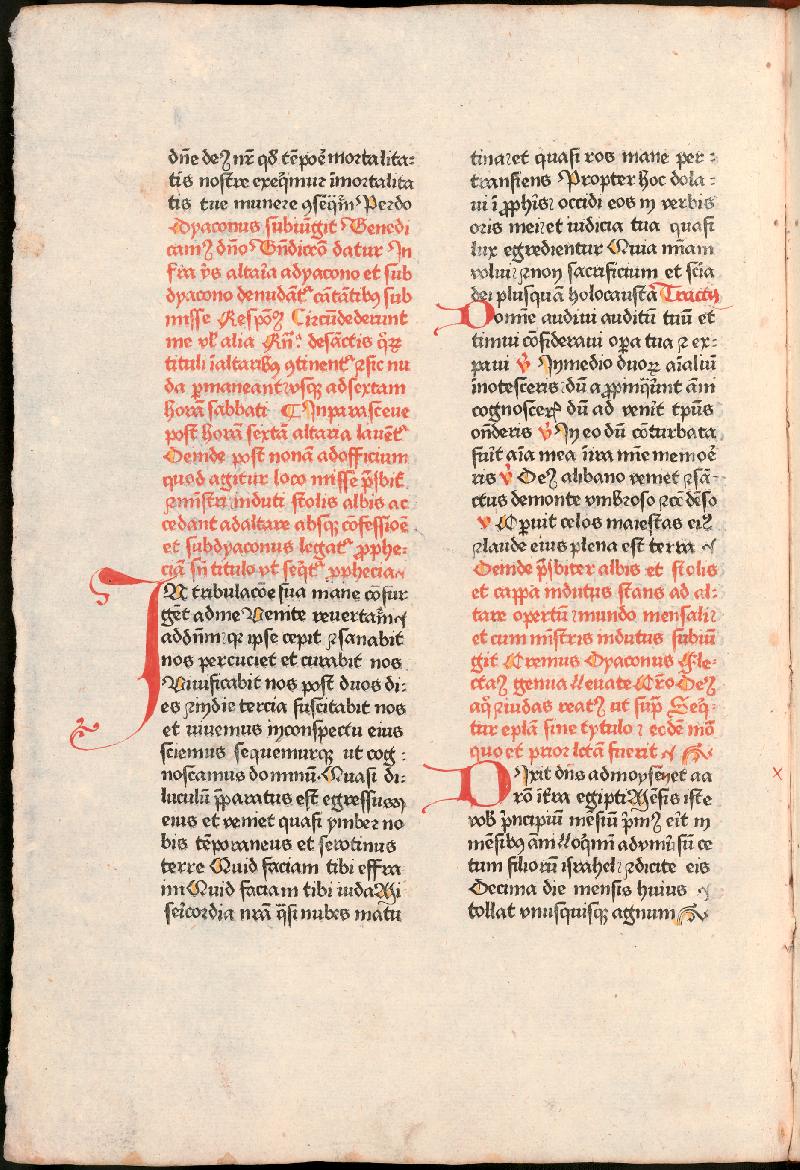 dn̄e deꝫ nr̄ qd̄ tēpoē mortalita⸗
tis nostre exeqimur īmortalita
tis tue munere ꝯseq̄m̄ Perdo
dyaconus subiūgit Benedi
camꝫ dn̄o Bn̄diceō datur In
fra v̄s altaīa adyacono et sub
dyacono denudāt᷑ cātātibꝫ sub
misse Respōꝫ Circūdederunt
me vl᷑ alia Rn̄: desāctis q̄ꝝ
tituli īaltaribꝫ ꝯtinent᷑ ⁊sic nu
da ꝑmaneant vsqꝫ adsextam
horā sabbati ¶ Inparasceue
post horā sextā altaria lauēt᷑
Deinde post nonā adofficium
quod agitur loco misse p̄sbit̄
⁊mīstri induti stolis albis ac
cedant adaltare absqꝫ cōfessioē
et subdyaconus legat᷑ ꝓphe⸗
ciā sn̄ titulo vt seq̄t᷑ ꝓphecia
IN tribulacōe sua mane cōsur
gēt adme Venite revertam̄
addn̄m qꝛ ipse cepit ⁊sanabit
nos percuciet et curabit nos
Viuificabit nos post duos di⸗
es ⁊indie tercia suscitabit nos
et viuemus inconspectu eius
sciemus sequemurqꝫ ut cog⸗
noscamus dominū Quasi di⸗
luculū p̄paratus est egressus
eius et veniet quasi ymber no
bis tēporaneus et serotinus
terre Quid faciam tibi effra
im Quid faciam tibi iuda Mi
sēicordia nr̄a q̄si nubes matu
tina ⁊et quasi ros mane per⸗
transiens Propter hoc dola⸗
ui ī ꝓphis ⁊ occidi eos in verbis
oris mei ⁊et iudicia tua quasi
lux egredientur Quia m̄iam
volui ⁊non sacrificium et scīa
dei plusquā holocaustā Tractꝯ
Domīe audiui auditū tuū et
timui cōsideraui oꝑa tua ⁊ ex⸗
paui v̄ Inmedio duoꝝ aīaliū
īnotesceris dū appīnq̄unt āni
cognosceris dū ad venit tp̄us
ōnderis v̄ In eo dū cōturbata
fūit aīa mea īira mīe memoē
ris v̄ Deꝫ alibano veniet ⁊sā⸗
ctus demonte vmbroso ⁊cōdēso
v̄ Operuit celos maiestas eiꝫ
⁊laude eius plena est terra
Deinde p̄sbiter albis et stolis
et cappa indutus stans ad al⸗
tare opertū mundo mensali
et cum mīstris indutus subiū
git Oremus Dyaconus Fle⸗
ctaꝫ genua leuate Or̄o Deꝫ
aq̄ ⁊iudas reatꝫ ut sup̄ Seq̄⸗
tur eplā sine tytulo ⁊ eodē mō
quo et prior lctā fuerit
Dixit dn̄s admoysen ⁊et aa
rō īt̄ra egipti Mēsis iste
vob̄ p̄ncipiū mēsiū p̄mꝫ eīt in
mēsibꝫ āni loq̄mī advniu͛sū ce
tum filioꝛū israhel ⁊dicite eis
Decima die mensis huius
tollat vnusquisqꝫ agnum